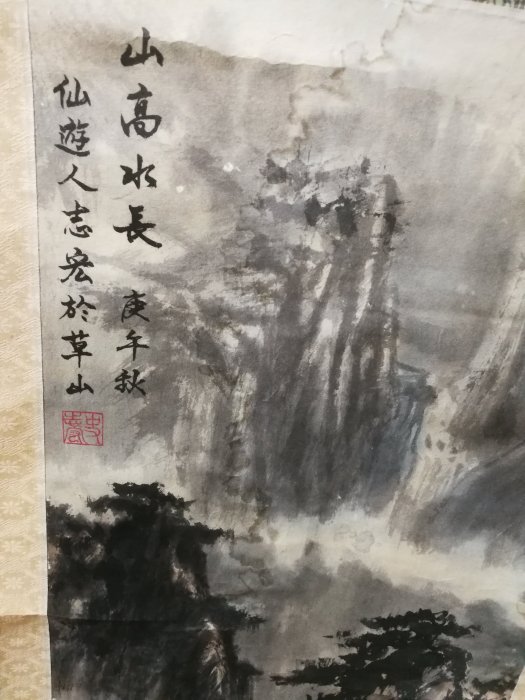 山高水長 庚午秋
仙遊人志宏於草山